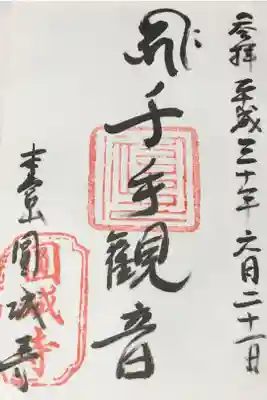 参拝 平成三十年六月二十一日
千手観音
圓城寺
圓城寺